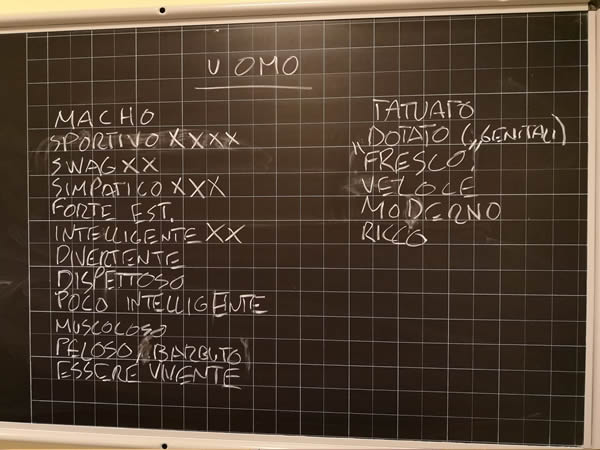 UOMO
MACHO
SPORTIVO XXXX
SWAG XX
SIMPATICO XXX
FORTE EST.
INTELLIGENTE XX
DIVERTENTE
DISPETTOSO
POCO INTELLIGENTE
MUSCOLOSO
PELOSO / BARBUTO
ESSERE VIVENTE
TATUATO
DOTATO (GENITALI)
"FRESCO"
VELOCE
MODERNO
RICCO